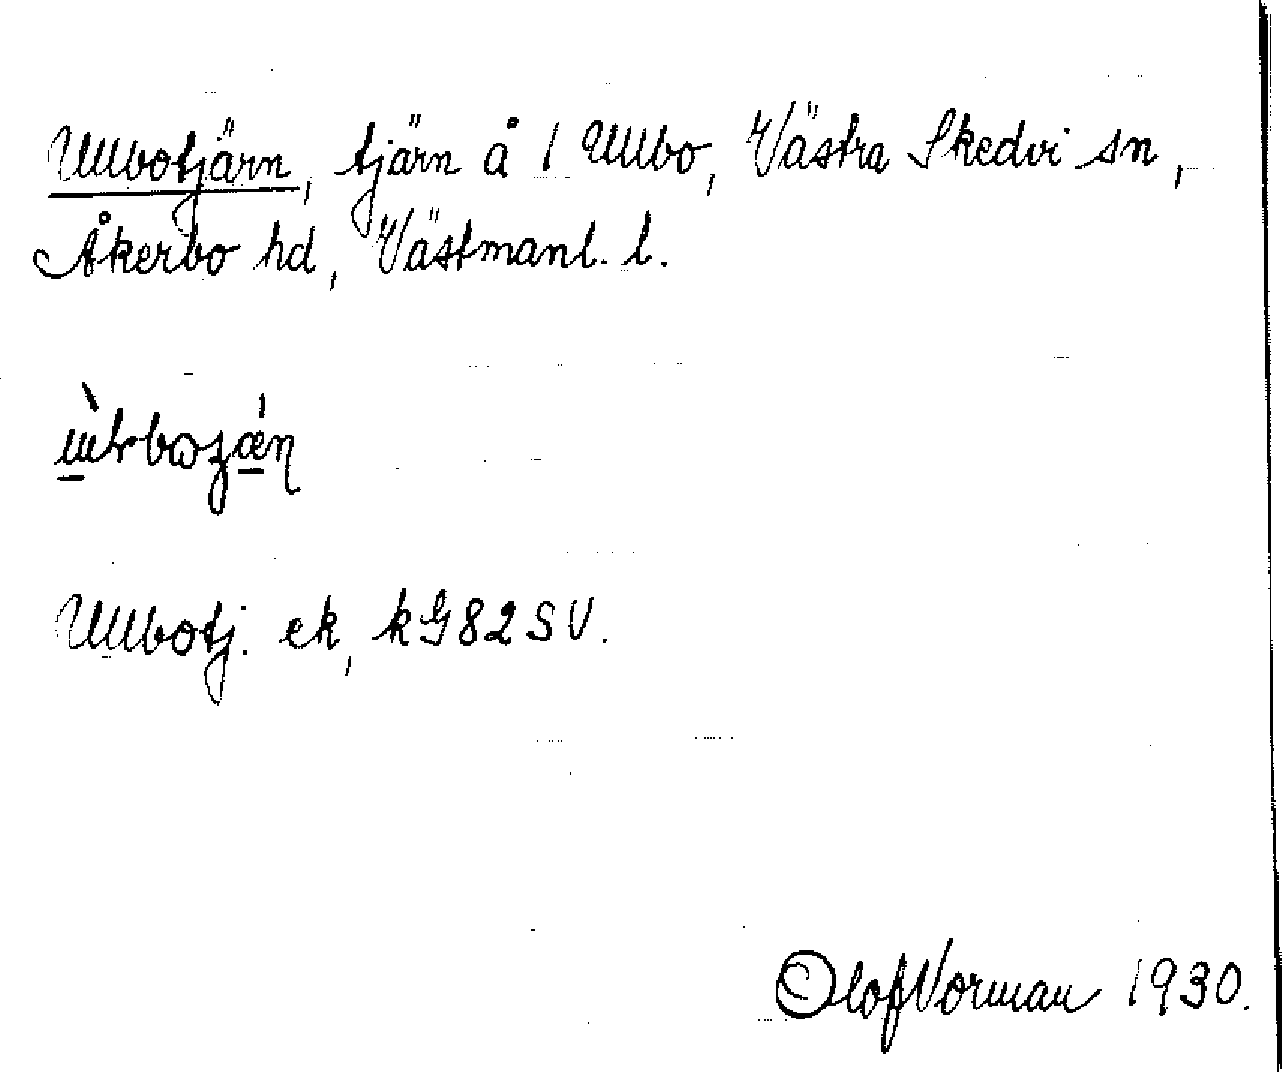 Ullbotjärn, tjärn å 1 Ullbo, Västra Skedvi sn,
Åkerbo hd, Västmanl. l.
Ullbotj. ek, kG82SV.
Olof Vorman 1930.